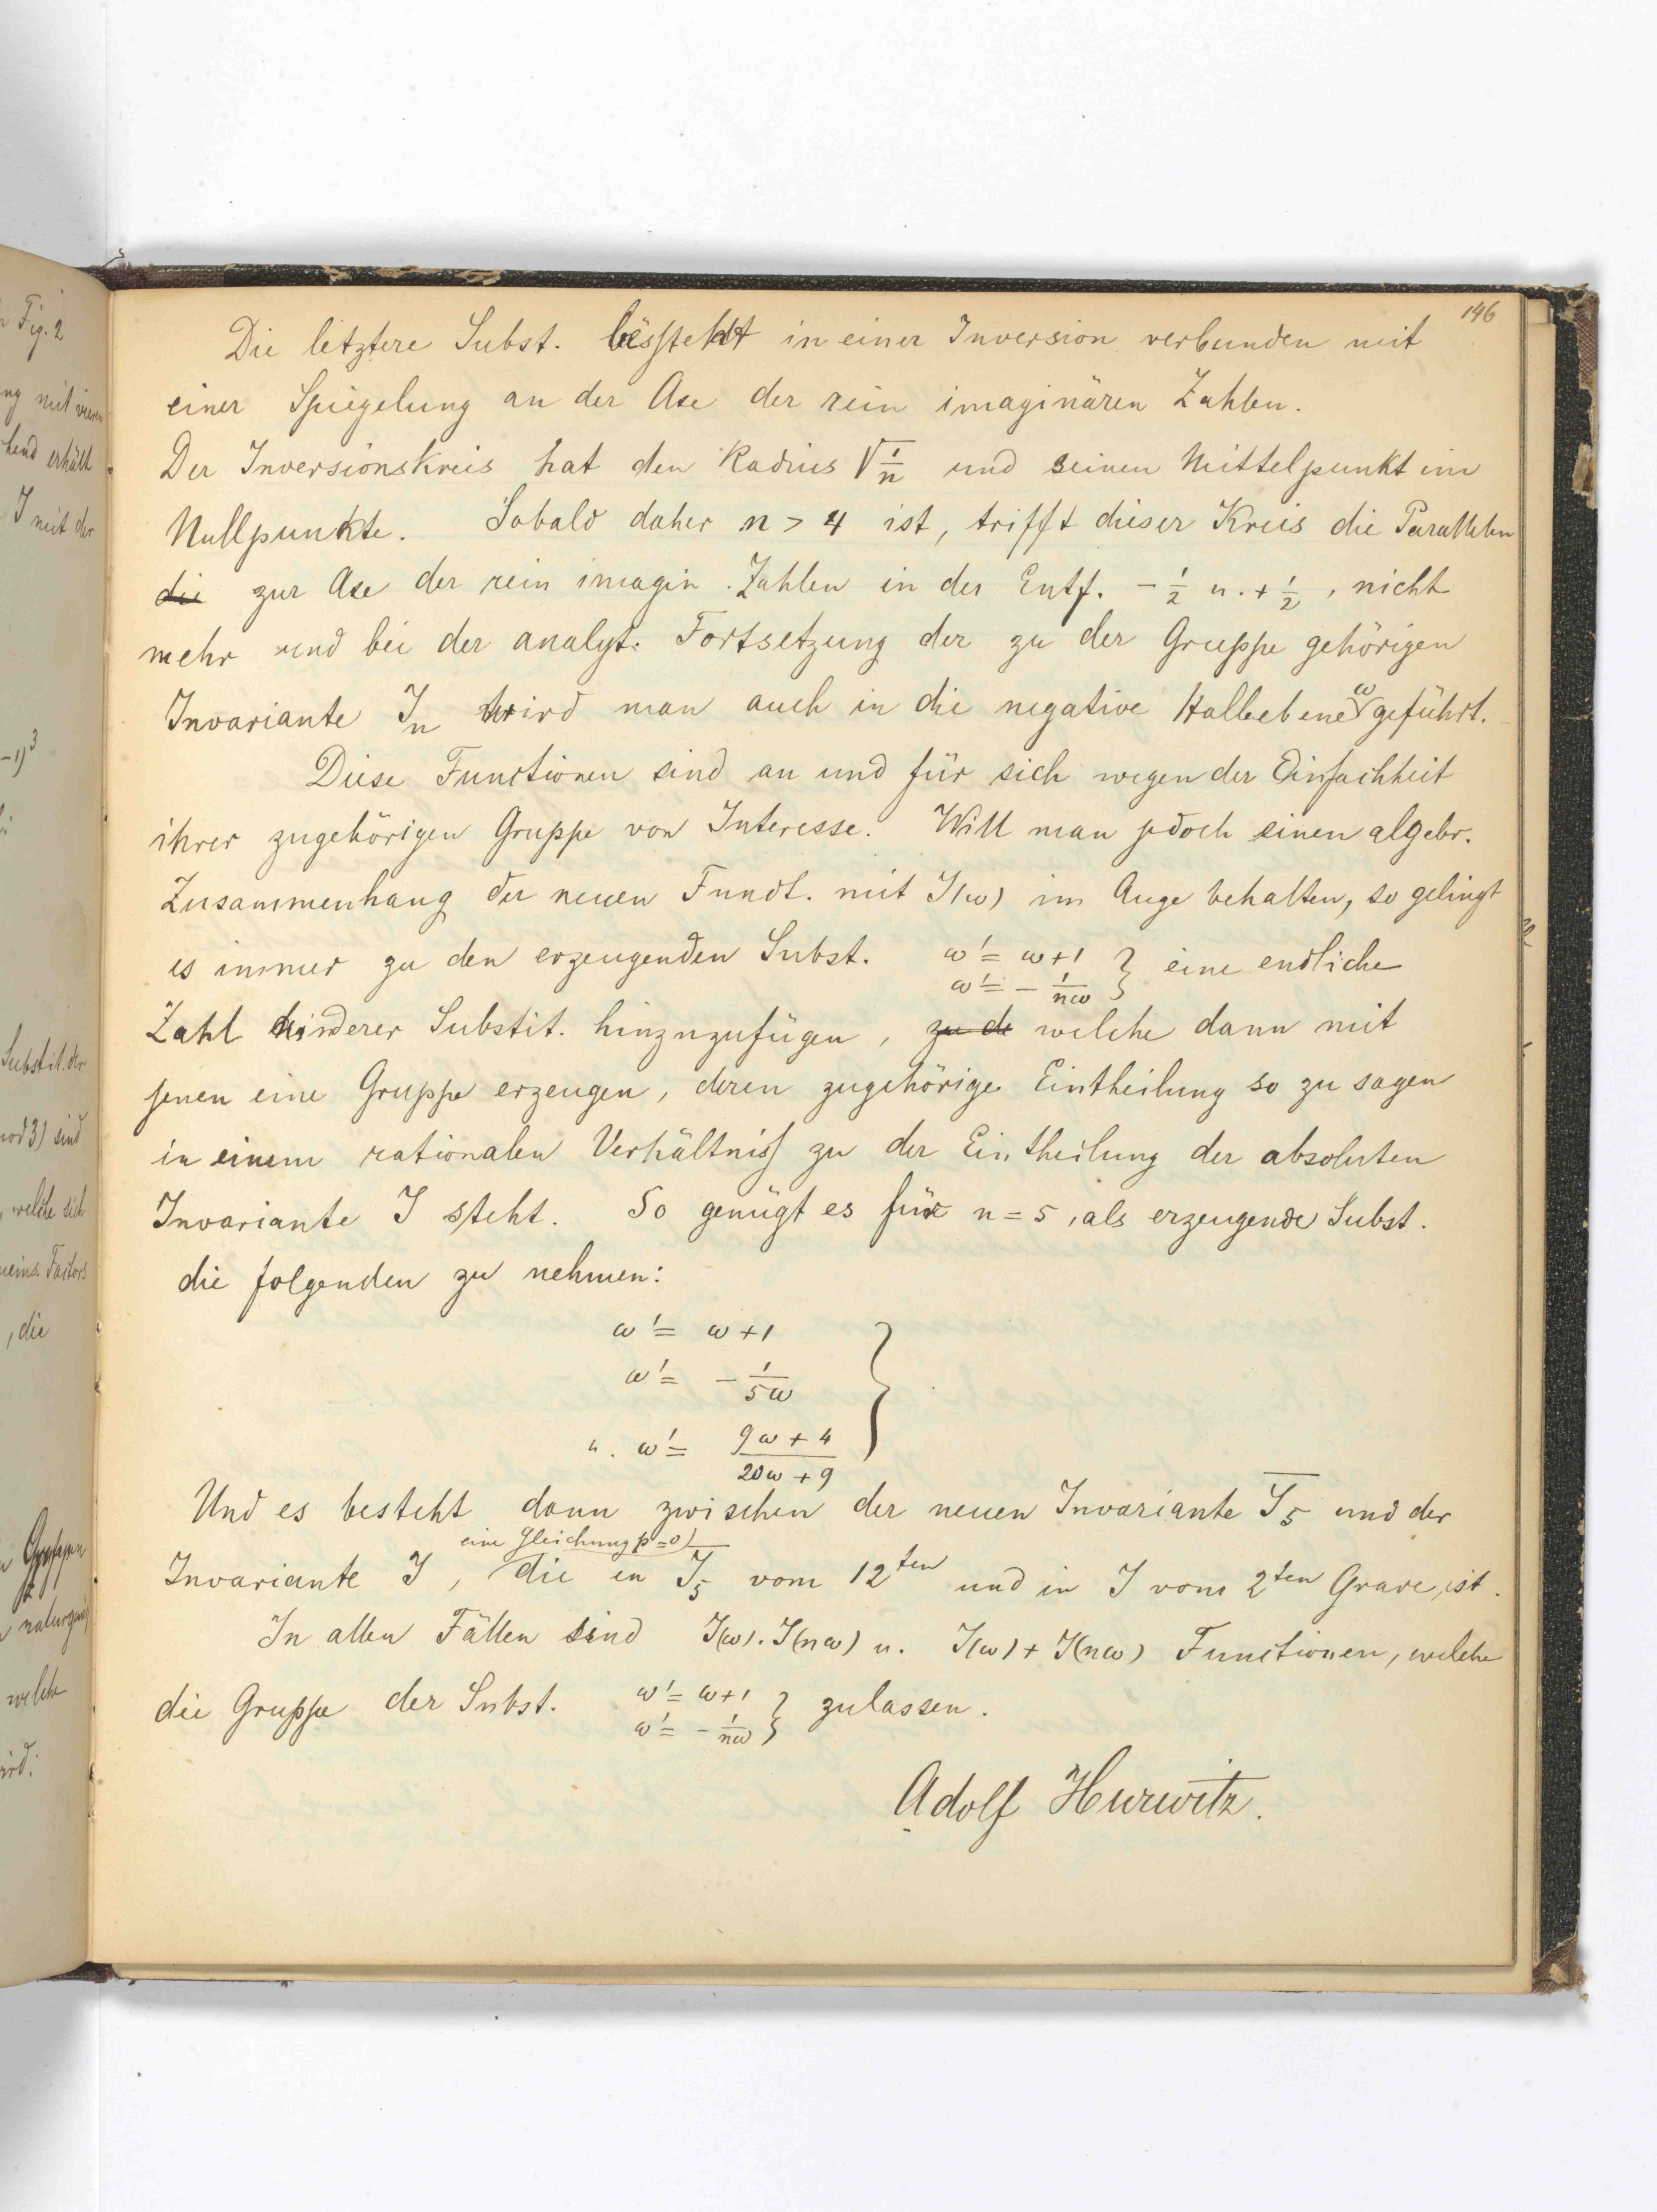 146
Die letztere Subst. besteht in einer Inversion verbunden mit
einer Spiegelung an der Axe der rein imaginären Zahlen.
Der Inversionskreis hat den Radius √1/n und seinen Mittelpunkt im
Nullpunkte. Sobald daher n > 4 ist, trifft dieser Kreis die Parallelen
die zur Axe der rein imagin. Zahlen in der Entf. - 1/2 u. + 1/2, nicht
mehr und bei der analyt. Fortsetzung der zu der Gruppe gehörigen
Invariante J_n wird man auch in die negative Halbebene ω geführt.
Diese Functionen sind an und für sich wegen der Einfachheit
ihrer zugehörigen Gruppe von Interesse. Will man jedoch einen algebr.
Zusammenhang der neuen Funct. mit J(ω) im Auge behalten, so gelingt
es immer zu den erzeugenden Subst. ω' = ω+1 } eine endliche
ω' = - 1/nω
Zahl anderer Substit. hinzuzufügen, zu de welche dann mit
jenen eine Gruppe erzeugen, deren zugehörige Eintheilung so zu sagen
in einem rationalen Verhältniß zu der Eintheilung der absoluten
Invariante J steht. So genügt es für n = 5, als erzeugende Subst.
die folgenden zu nehmen:
ω' = ω+1
ω' = - 1/5ω
u. ω' = (9ω + 4)/(20ω + 9)
Und es besteht dann zwischen der neuen Invariante J̅_5 und der
eine Gleichung (p=0)
Invariante J, die in J̅_5 vom 12ten und in J vom 2ten Grade ist.
In allen Fällen sind J(ω). J(nω) u. J(ω) + J(nω) Functionen, welche
die Gruppe der Subst. ω' = ω+1 } zulassen.
ω' = - 1/nω
Adolf Hurwitz.
Fig. 2
erhält
J mit der
-1)^3
Substit. der
mod 3) sind
, welche sich
Factors
, die
welche